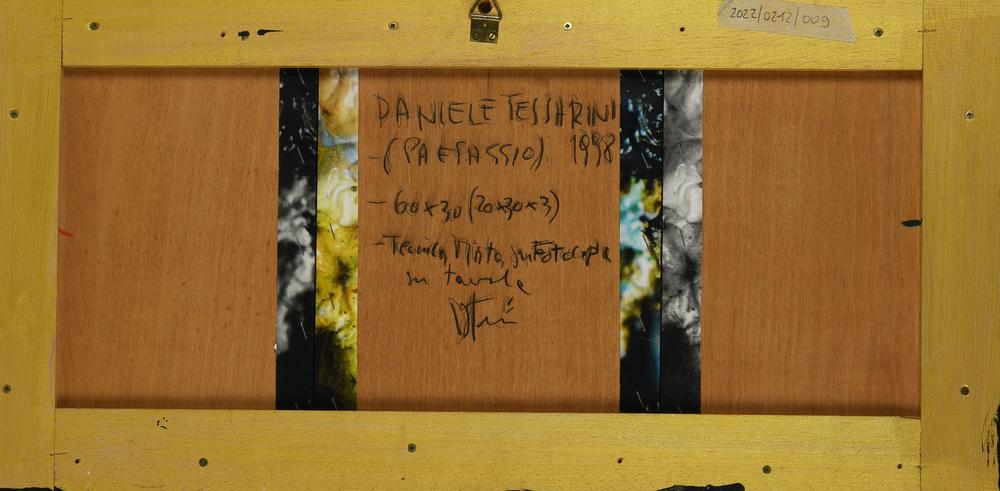 2022/0212/009
DANIELE TESSARINI
-(PAESAGGIO). 1998
- 60x30 (20x30x3)
- Tecnica Mista su Fotocopia
su tavola